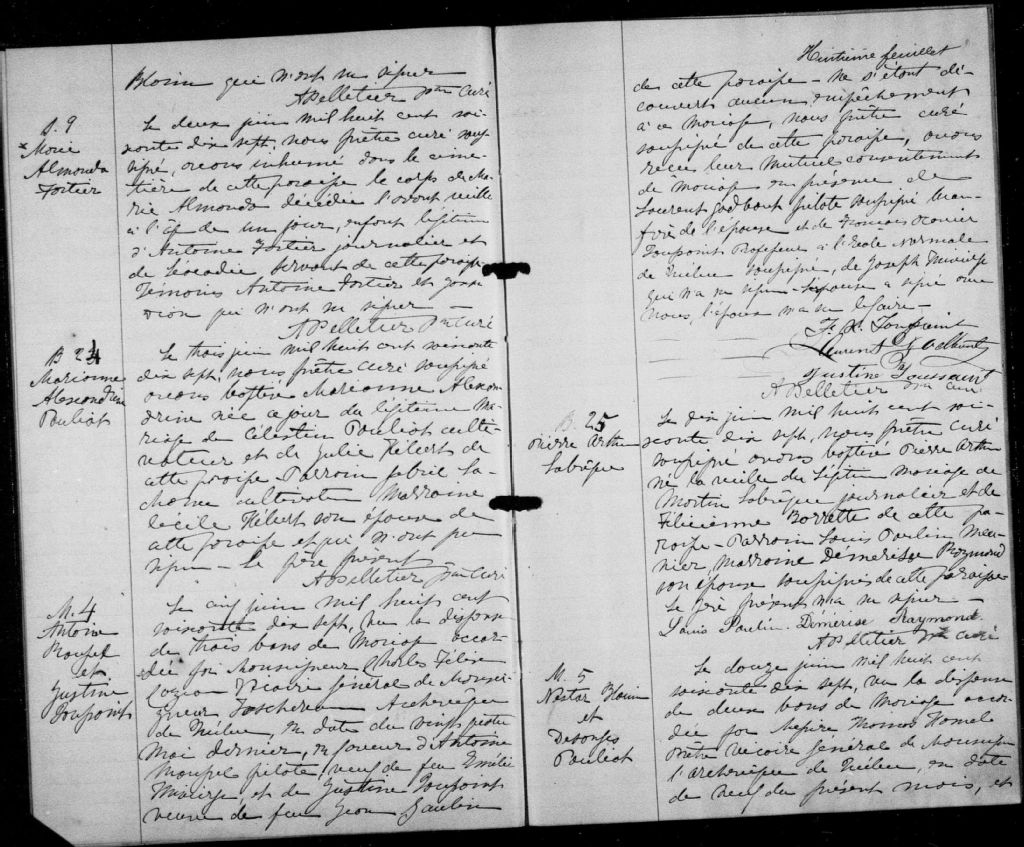 Blouin qui n'ont su signer
A Pelletier Ptre Curé
S. 9
Marie
Almonda
Fortier
Le deux juin mil huit cent soi-
xante dix sept, nous prêtre curé sous-
signé, avons inhumé dans le cime-
tière de cette paroisse le corps de Ma-
rie Almonda décédée l'avant veille
à l'âge de un jour, enfant légitime
d'Antoine Fortier journalier et
de Léocadie Servant de cette paroisse
Témoins Antoine Fortier et
qui n'ont su signer —
A Pelletier Ptre Curé
B 24
Marianne
Alexandrine
Pouliot
Le trois juin mil huit cent soixante
dix sept, nous prêtre curé soussigné
avons baptisé Marianne Alexan-
drine née ce jour du légitime Ma-
riage de Célestin Pouliot culti-
vateur et de Julie Hébert de
cette paroisse Parrain Gabriel La-
cultivateur Marraine
Cécile Hébert son épouse de
cette paroisse et qui n'ont pu
signer — Le père présent
A Pelletier Ptre Curé
M. 4
Antoine
et
Justine
Le cinq juin mil huit cent
soixante dix sept, vu la dispense
de trois bans de Mariage accor-
dée par Monseigneur Charles Félix
Cazeau Vicaire général de Monsei-
gneur Taschereau Archevêque
de Québec, en date du vingt quatre
Mai dernier, en faveur d'Antoine
pilote, veuf de feu Emilie
et de Justine
veuve de feu Jean Gaulin
Huitième feuillet
de cette paroisse — ne s'étant dé-
couvert aucun empêchement
à ce mariage, nous prêtre curé
soussigné de cette paroisse, avons
reçu leur mutuel consentement
de mariage en présence de
Laurent Godbout pilote soussigné
de l'épouse et de François Xavier
Toupoint Professeur à l'Ecole Normale
de Québec soussigné, de Joseph
qui n'a su signer — L'épouse a signé avec
nous, l'époux n'a su le faire —
F. X. Toussaint
Laurent Godbout
Justine Toussaint
A Pelletier Ptre Curé
B. 25
Pierre Arthur
Labrèque
Le dix juin mil huit cent soi-
xante dix sept, nous prêtre curé
soussigné avons baptisé Pierre Arthur
né la veille du légitime mariage de
Martin Labrèque journalier et de
Félicienne Borrette de cette pa-
roisse — Parrain Louis Poulin Meu-
nier, Marraine Démérise Raymond
son épouse soussignés de cette paroisse
Le père présent n'a su signer —
Louis Paulin. Démerise Raymond.
A Pelletier Ptre Curé
M. 5
Nestor Blouin
et
Desanges
Pouliot
Le douze juin mil huit cent
soixante dix sept, vu la dispense
de deux bans de Mariage accor-
dée par Messire Thomas Hamel
Prêtre Vicaire général de Monseigneur
l'archevêque de Québec, en date
de neuf du présent mois, et